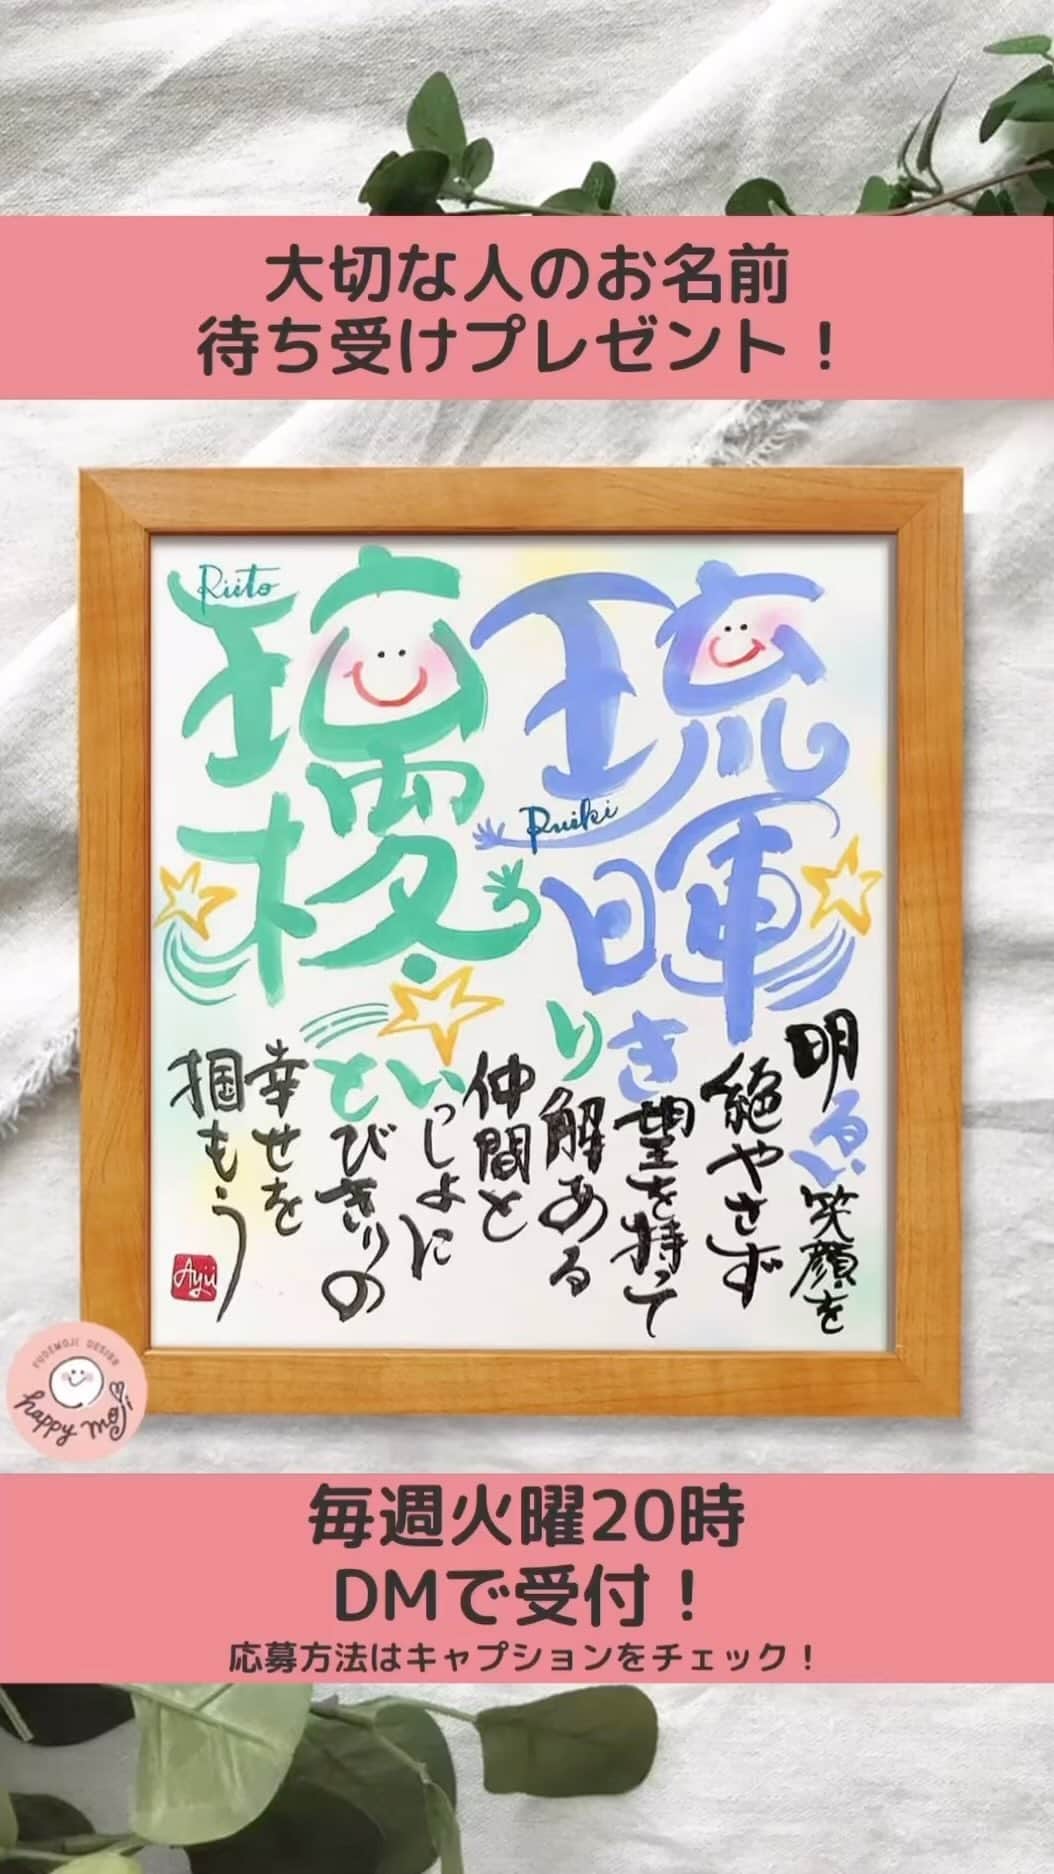 大切な人のお名前
待ち受けプレゼント！
琉暉
Ruiki
璃桜
Riito
明るい笑顔を
絶やさず
き望を持って
り解ある
仲間と
いっしょに
とびきりの
幸せを
掴もう
Ayii
FUDEMOJI DESIGN
happy moji
毎週火曜20時
DMで受付！
応募方法はキャプションをチェック！